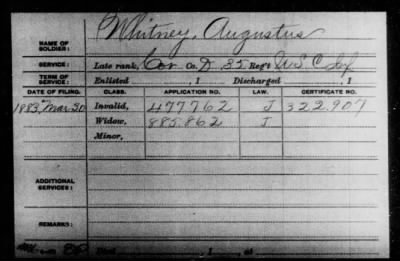 NAME OF SOLDIER: Whitney, Augustus
SERVICE: Late rank, Cor Co. D, 35 Reg't U.S.C Inf
TERM OF SERVICE: Enlisted , 1 Discharged , 1
DATE OF FILING. CLASS. APPLICATION NO. LAW. CERTIFICATE NO.
1883, Mar 30 Invalid, 477762 J 322.907
Widow, 885.862 J
Minor,
ADDITIONAL SERVICES:
REMARKS:
1 , at